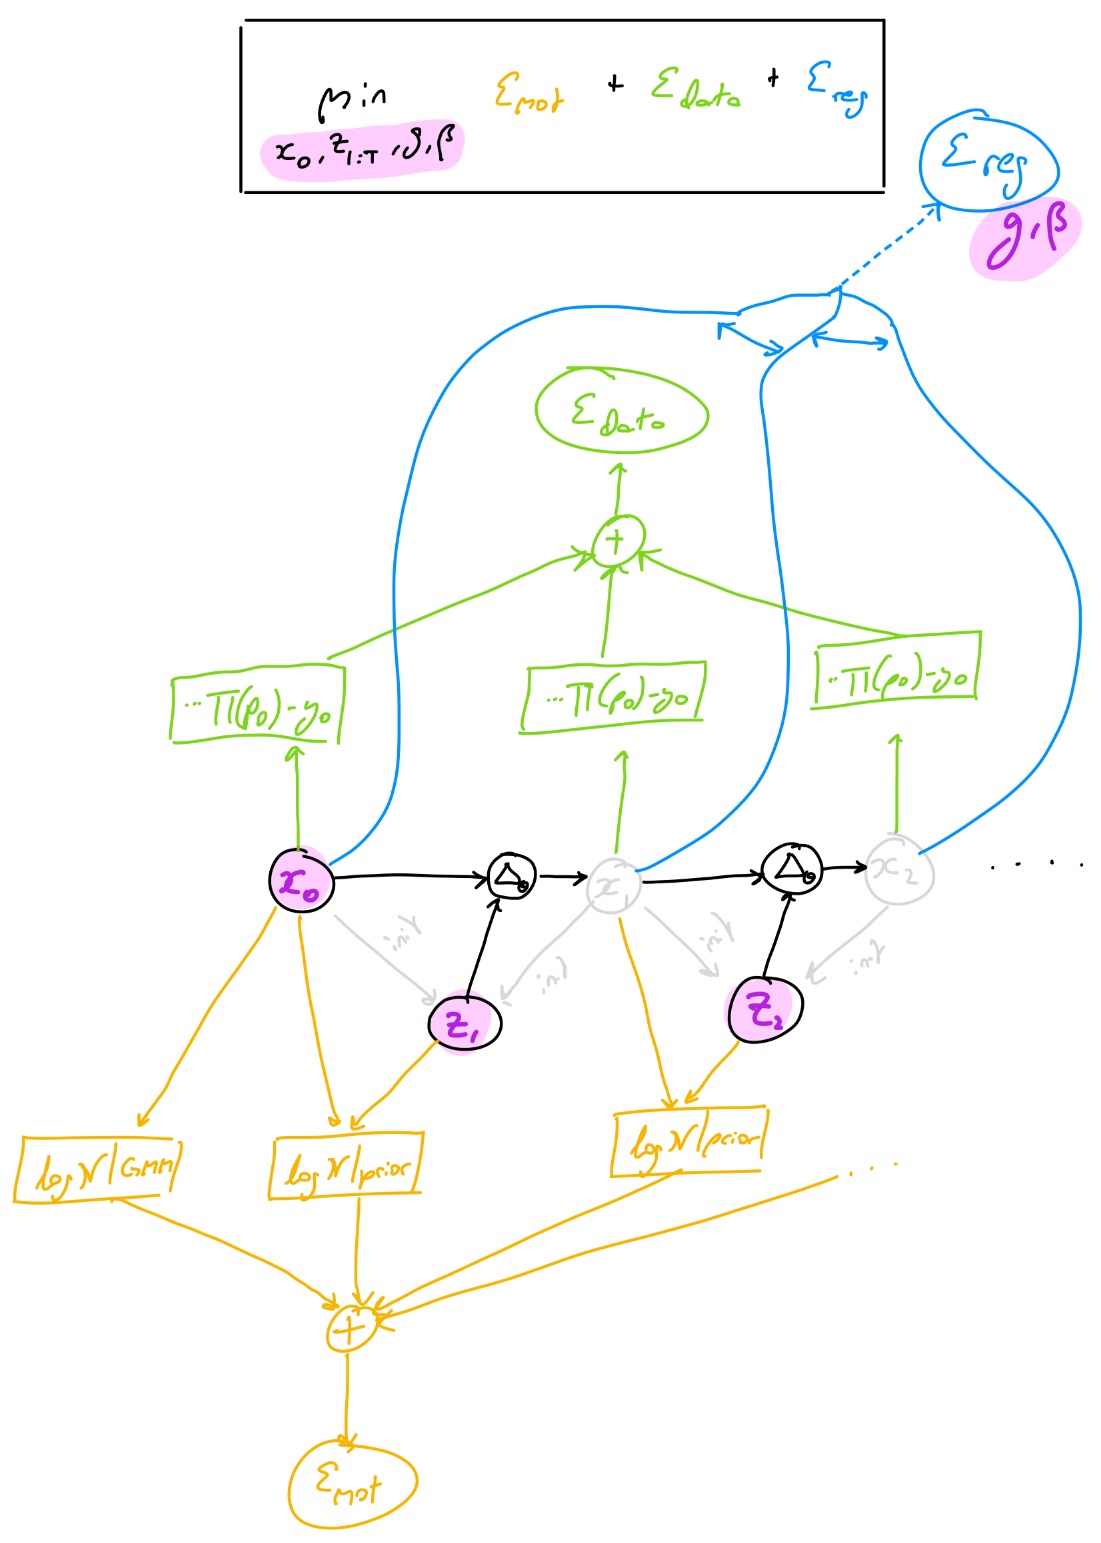 min ℰmot + ℰdata + ℰreg
x₀, z₁:T, g, β
ℰreg
g, β
ℰData
+
...Π(p₀)-y₀
...Π(p₀)-y₀
...Π(p₀)-y₀
x₀
Δθ
x₁
Δθ
x₂
.....
init
init
init
init
z₁
z₂
log N/GMM
log N/prior
log N/prior
...
+
ℰmot